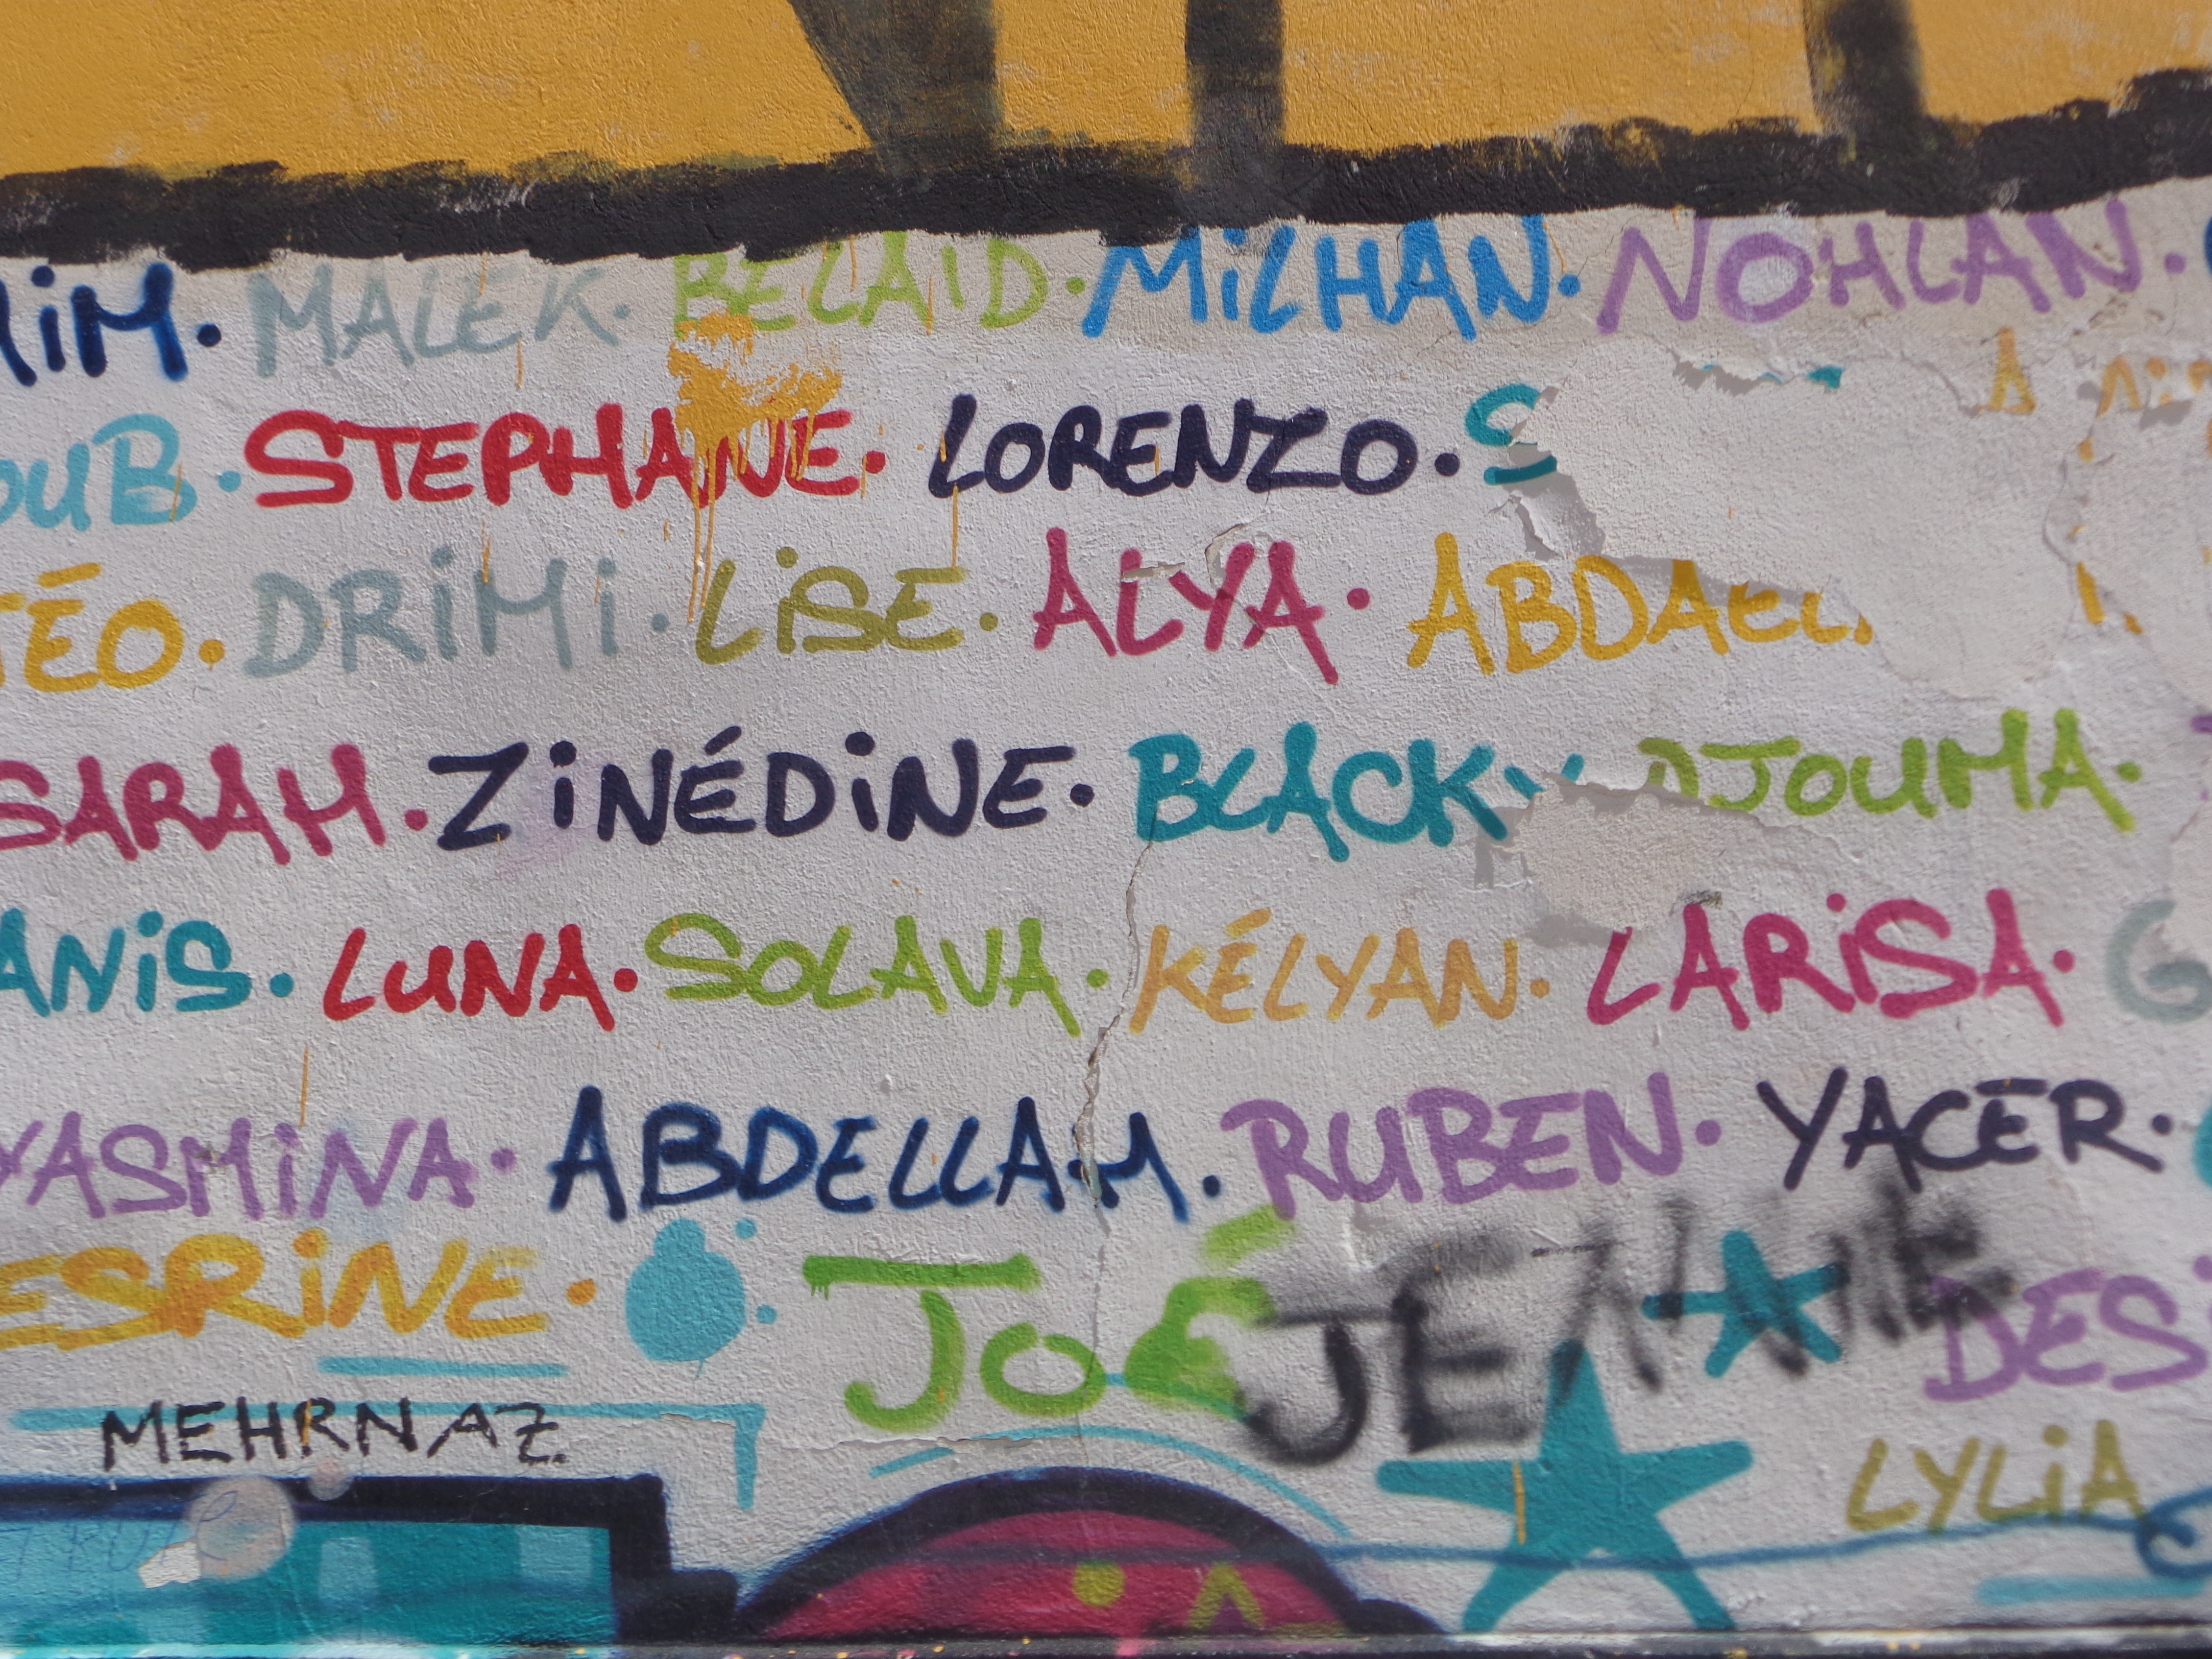 MALEK. BELAID. MiLHAN. NOHLAN.
STEPHANE. LORENZO.
DRiMi. LiSE. ALYA.
SARAH. ZiNÉDiNE. BLACKY DJOUMA.
ANiS. LUNA. SOLAVA. KÉLYAN. LARiSA.
YASMiNA. ABDELLAH. RUBEN. YACER.
JOÉ JENNIE
MEHRNAZ.
LYLiA